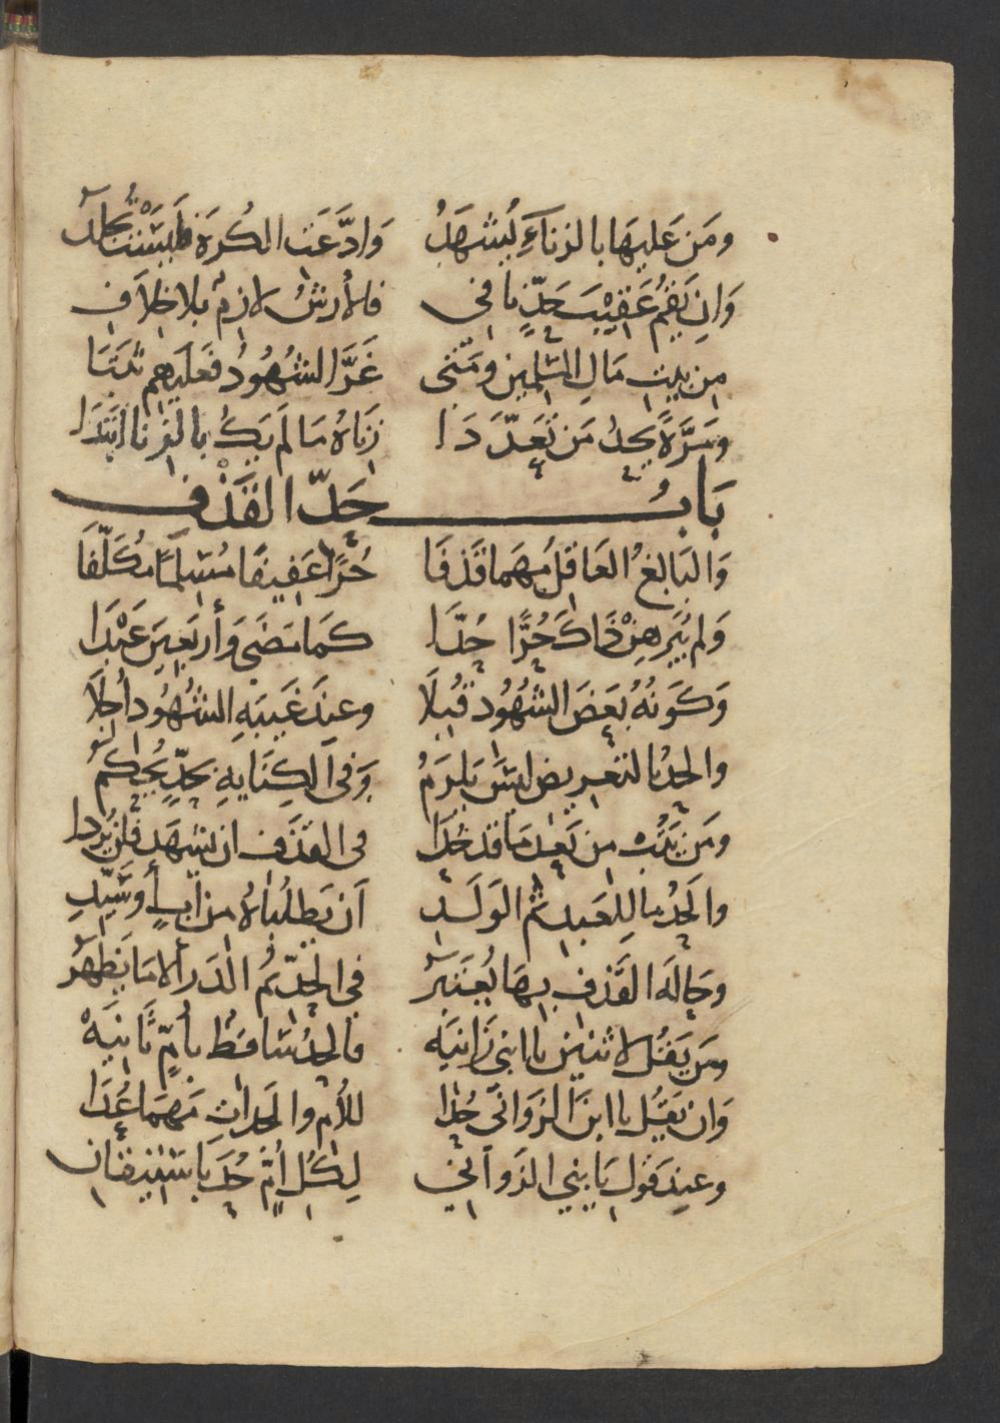 ومَن عَليهَا بالزناءِ يُشهَدُ وَادَّعَت الكُرهَ فليسَتْ تُجلدُ
وَاِن يَقُم عَقِيْبَ حَدٍّ نافي فالأرشُ لازمٌ بلا خِلاَفِ
مِن بيتِ مَالِ المسْلمين ومَتى غَرَّ الشهُودُ فعَليهِم ثبَتَا
ومَرَّةً يحدُ مَن تَعَدّدَا زِنَاهُ مَا لم يَكُ بالغِنا ابتَدَا
بَابُ حَدّ القَذْف
وَالبَالغُ العَاقلُ مَهمَا قَذفَا حُرًّا عَفِيفًا مُسْلمًا مُكَلّفَا
وَلم يُبَرهِنْ ذَاكَ حُرًّا حُدّا كمَا مَضَى وَأربَعِينَ عَبْدَا
وَكَونُهُ بَعضَ الشهُودِ قُبلاَ وعندَ غَيبَةِ الشهُودِ أُجلاَ
والحدُ بالتعريضِ ليسَ يَلزَمُ وَفي الكِنَايةِ بحدٍّ يُحكمُ
ومَن يَتُب مِن بَعدِ مَا قد حُدَّا في القذفِ ان يشهَد فلن يُردا
والحَدُّ للعَبدِ ثم الوَلَدِ اَن يَطلُبَاهُ مِن أبٍ أو سَيّدِ
وحَالَة القَذفِ بهَا يُعتَبَرُ في الحدّ ثم الدَرأ لا مَا يَظهَرُ
ومَن يَقُل لاثنَين يا ابنَي زَانيَه فالحدُ سَاقطٌ بأمٍّ ثَانيَهْ
وَان يَقُل يا ابنَ الزَوَاني حُدا للأُم والجَداتِ مَهمَا عُدَّا
وعندَ قَولِ يَا بَني الزَوَاني لِكُل أُمٍّ حُدَ باستيقانِ